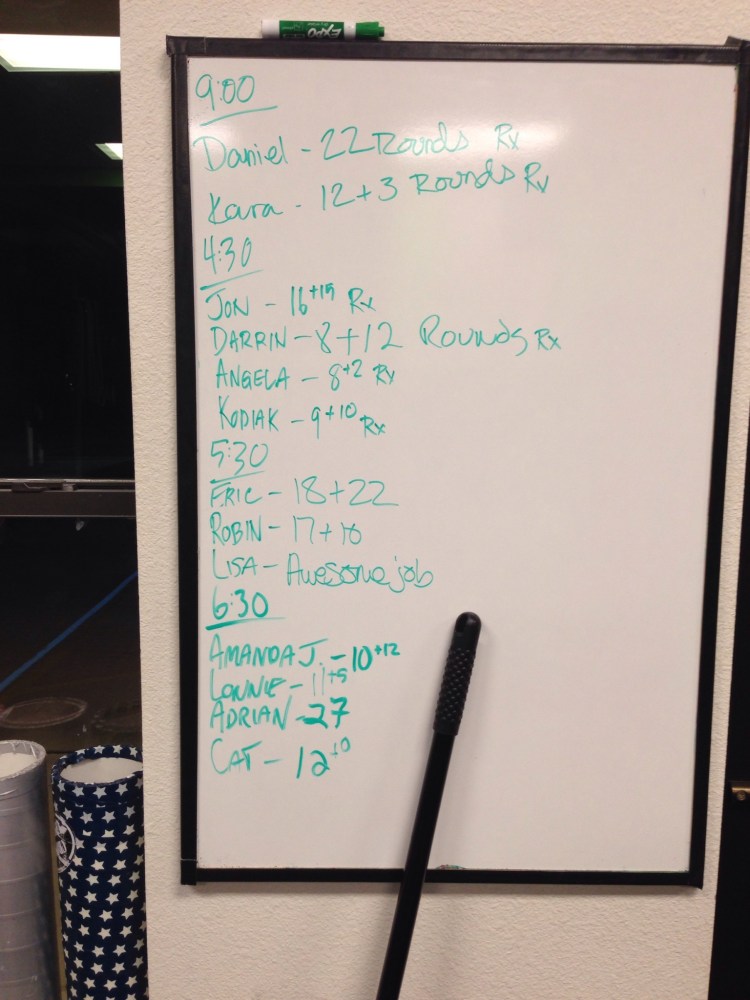 EXPO
9:00
Daniel - 22 Rounds Rx
Kara - 12+3 Rounds Rx
4:30
JON - 16+15 Rx
DARRIN - 8+12 Rounds Rx
ANGELA - 8+2 Rx
KODIAK - 9+10 Rx
5:30
ERIC - 18+22
ROBIN - 17+16
LISA - Awesome job
6:30
AMANDA J. - 10+12
LONNIE - 11+5
ADRIAN - 27
CAT - 12+0